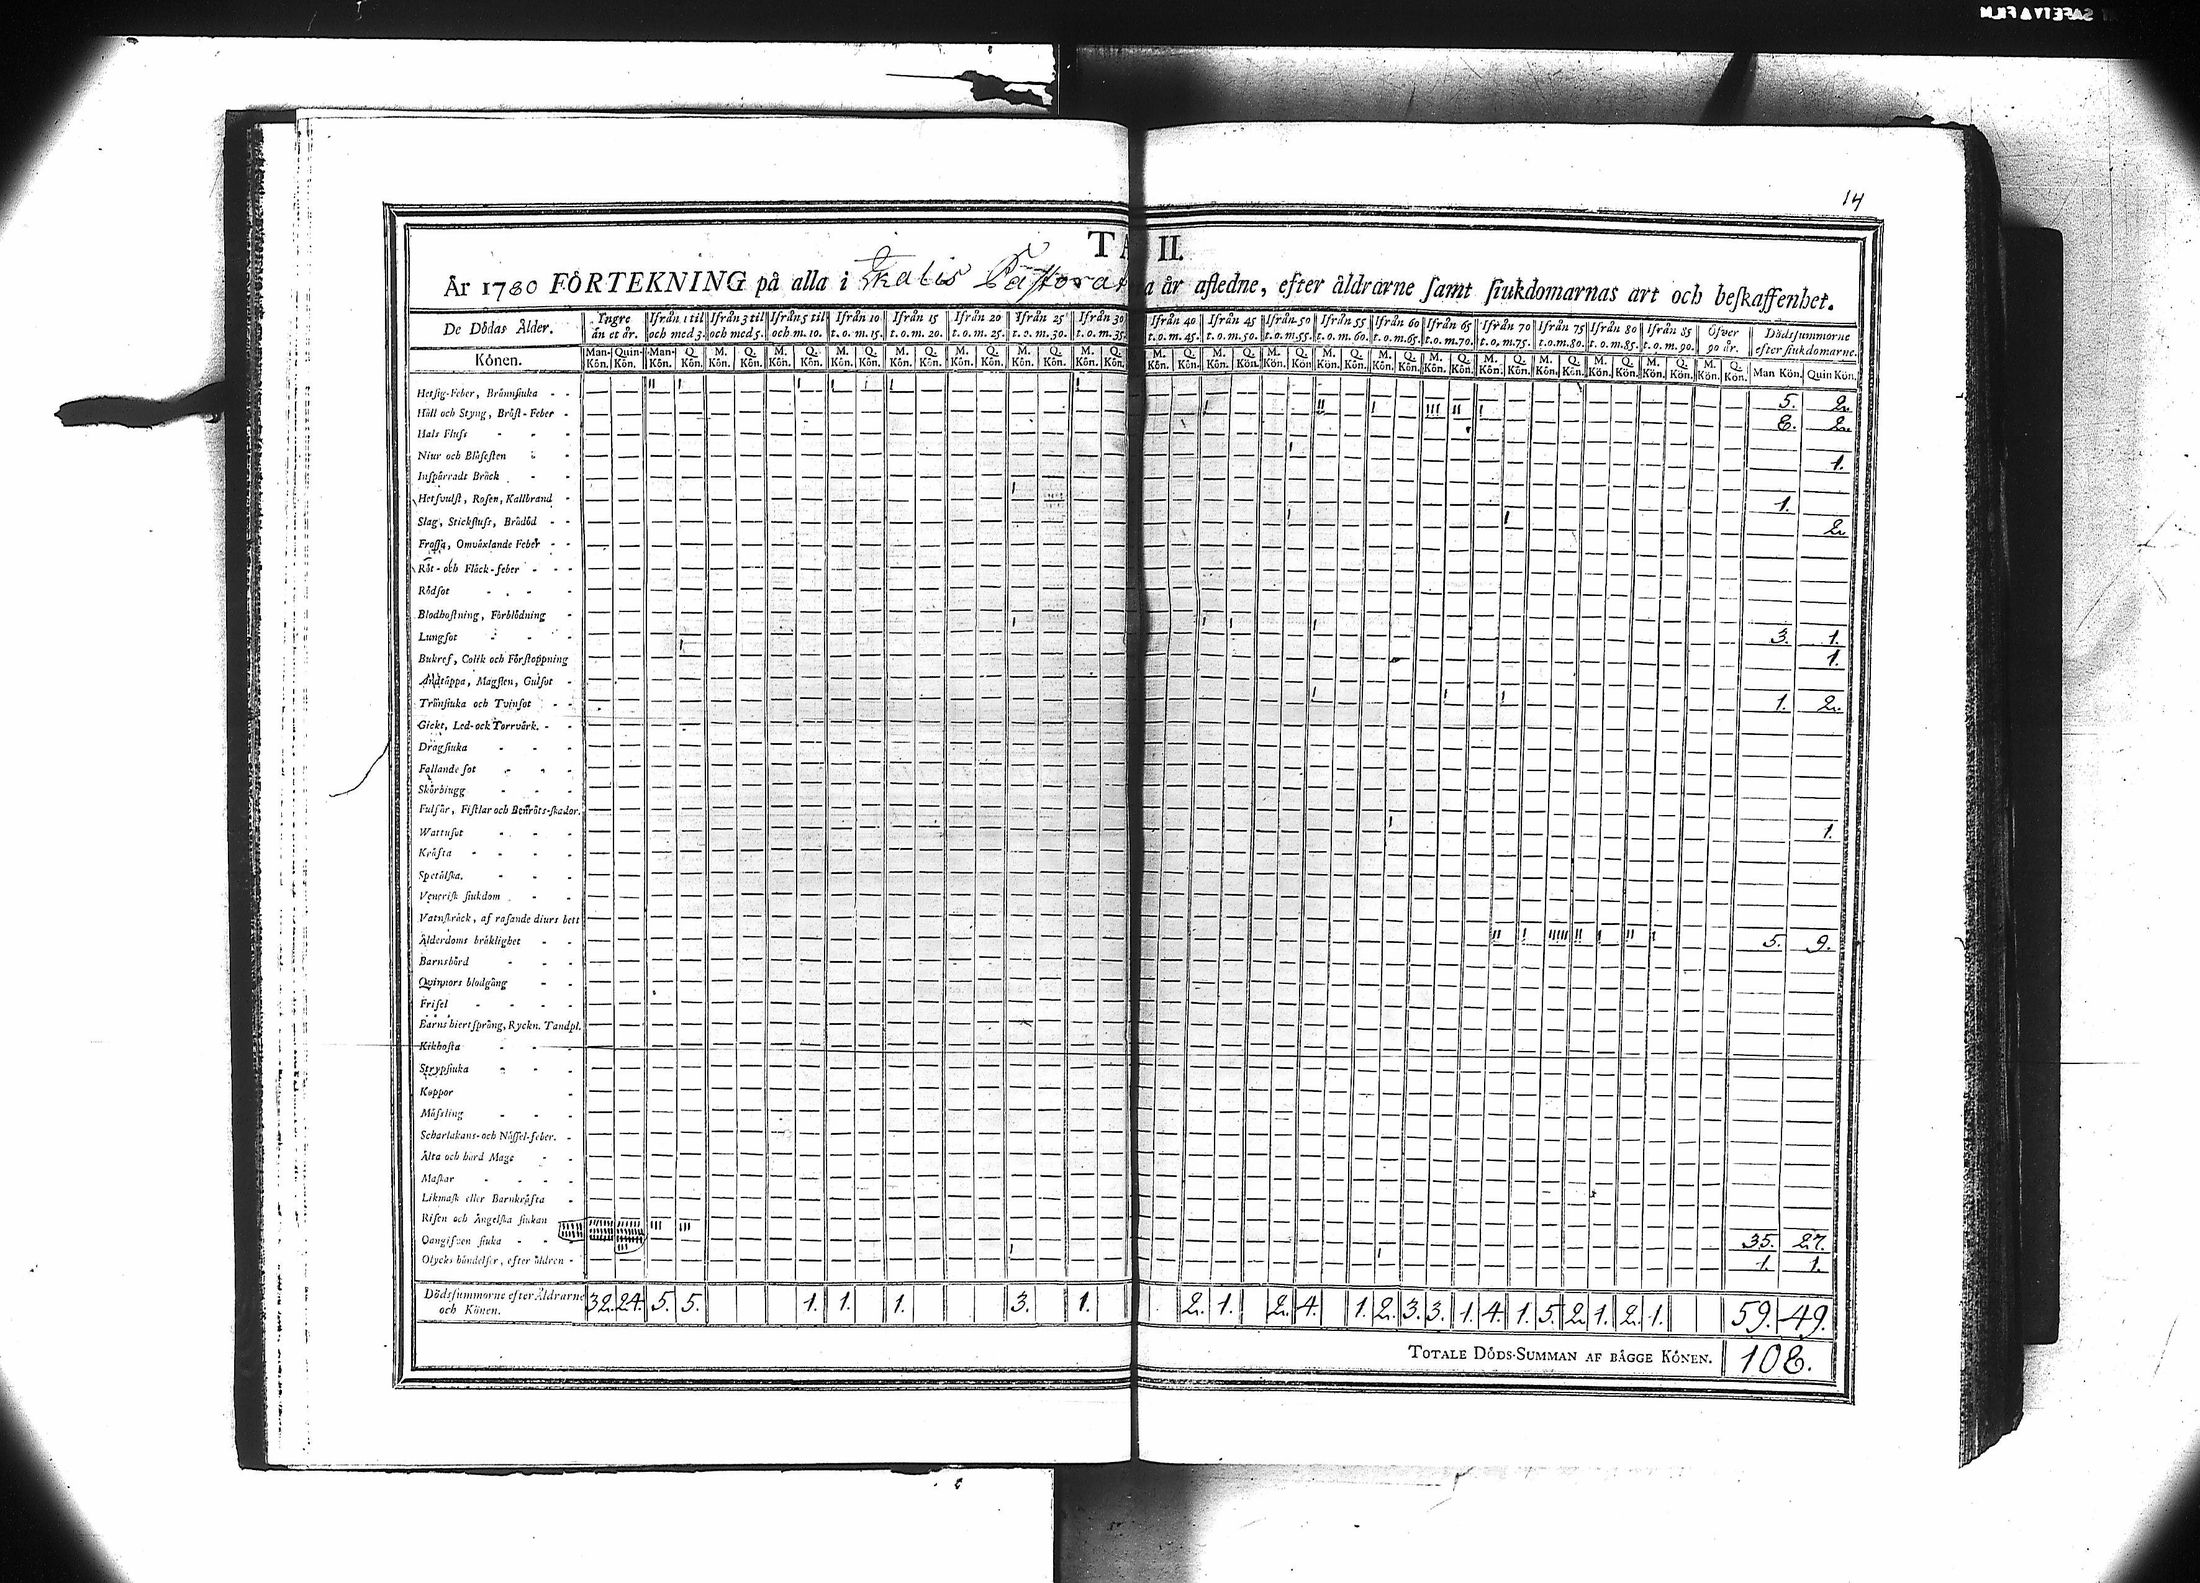 SAFETY FILM
14
TA II.
År 1780 FÖRTEKNING på alla i Skatis Pastorat a år afledne, efter åldrarne samt siukdomarnas art och beskaffenhet.
De Dödas Ålder. Yngre än et år. Ifrån 1 til och med 3. Ifrån 3 til och med 5. Ifrån 5 til och m. 10. Ifrån 10 t. o. m. 15. Ifrån 15 t. o. m. 20. Ifrån 20 t. o. m. 25. Ifrån 25 t. o. m. 30. Ifrån 30 t. o. m. 35. Ifrån 40 t. o. m. 45. Ifrån 45 t. o. m. 50. Ifrån 50 t. o. m. 55. Ifrån 55 t. o. m. 60. Ifrån 60 t. o. m. 65. Ifrån 65 t. o. m. 70. Ifrån 70 t. o. m. 75. Ifrån 75 t. o. m. 80. Ifrån 80 t. o. m. 85. Ifrån 85 t. o. m. 90. Öfver 90 år. Dödssummorne efter siukdomarne.
Könen. Man-Kön. Quin-Kön. Man-Kön. Q. Kön. M. Kön. Q. Kön. M. Kön. Q. Kön. M. Kön. Q. Kön. M. Kön. Q. Kön. M. Kön. Q. Kön. M. Kön. Q. Kön. M. Kön. Q. Kön. M. Kön. Q. Kön. M. Kön. Q. Kön. M. Kön. Q. Kön. M. Kön. Q. Kön. M. Kön. Q. Kön. M. Kön. Q. Kön. M. Kön. Q. Kön. M. Kön. Q. Kön. M. Kön. Q. Kön. M. Kön. Q. Kön. M. Kön. Q. Kön. Man Kön. Quin Kön.
Hetsig-Feber, Brännsiuka 5. 2.
Håll och Styng, Bröst-Feber 8. 2.
Hals Fluss
Niur och Blåsesten 1.
Inspärradt Bråck
Hetsvulst, Rosen, Kallbrand 1.
Slag, Stickfluss, Brådöd 2.
Frossa, Omväxlande Feber
Röt- och Fläck-feber
Rödsot
Blodhostning, Förblödning
Lungsot 3. 1.
Bukref, Colik och Förstoppning 1.
Andtäppa, Magsten, Gulsot
Trånsiuka och Tvinsot 1. 2.
Gickt, Led-ock Torrvärk.
Dragsiuka
Fallande sot
Skörbiugg
Fulsår, Fistlar och Benröts-skador.
Wattusot 1.
Kräfta
Spetälska.
Venerisk siukdom
Vatnskräck, af rasande diurs bett
Ålderdoms bräklighet 5. 9.
Barnsbörd
Quinnors blodgång
Frisel
Barns hiertsprång, Ryckn. Tandpl.
Kikhosta
Strypsiuka
Koppor
Mässling
Scharlakans- och Nässel-feber.
Älta och hård Mage
Maskar
Likmask eller Barnkräfta
Risen och Ängelska siukan
Oangifven siuka 35. 27.
Olycks händelser, efter äldren 1. 1.
Dödssummorne efter Åldrarne och Könen. 32. 24. 5. 5. 1. 1. 1. 3. 1. 2. 1. 2. 4. 1. 2. 3. 3. 1. 4. 1. 5. 2. 1. 2. 1. 59. 49.
TOTALE DÖDS-SUMMAN AF BÄGGE KÖNEN. 108.